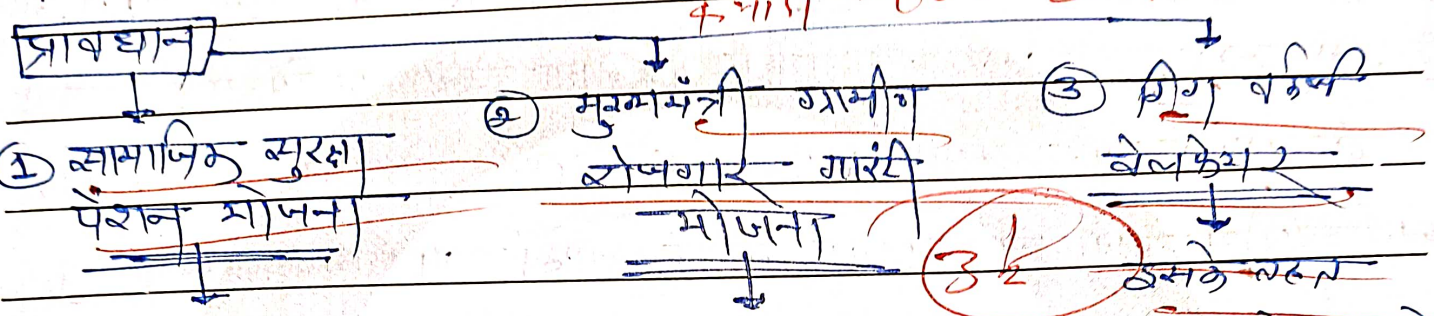 प्रावधान
① सामाजिक सुरक्षा
पेंशन योजना
② मुख्यमंत्री ग्रामीण
रोजगार गारंटी
योजना
③ गिग वर्कर्स
वेलफेयर
इसके तहत
3½